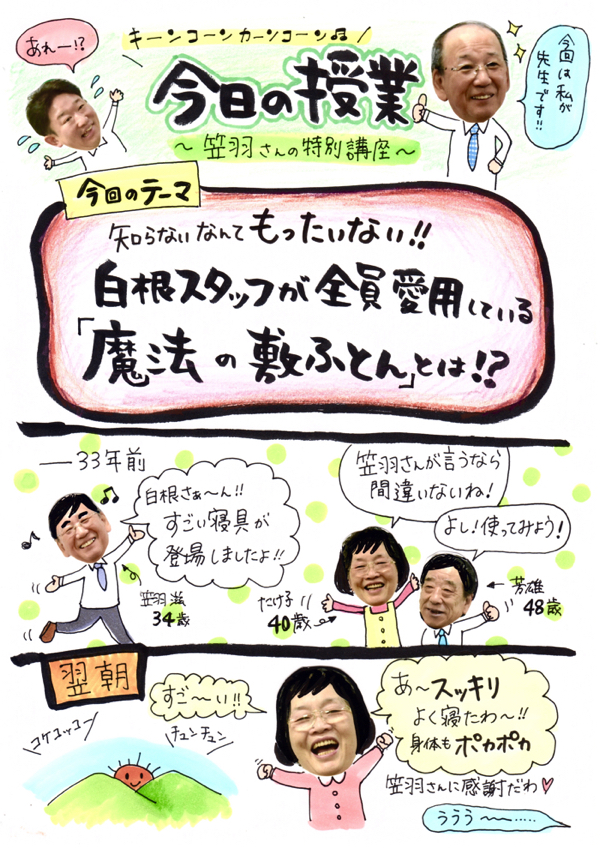 キーンコーンカーンコーン♫
あれー!?
今日の授業
今回は私が
先生です!!
〜笠羽さんの特別講座〜
今回のテーマ
知らないなんてもったいない!!
白根スタッフが全員愛用している
「魔法の敷ふとん」とは!?
——33年前
白根さぁ〜ん!!
すごい寝具が
登場しましたよ!!
笠羽さんが言うなら
間違いないね!
よし!使ってみよう!
笠羽滋
34歳
たけ子
40歳
芳雄
48歳
翌朝
コケコッコー
チュンチュン
すご〜い!!
あ〜スッキリ
よく寝たわ〜!!
身体もポカポカ
笠羽さんに感謝だわ♥
ううう〜〜……